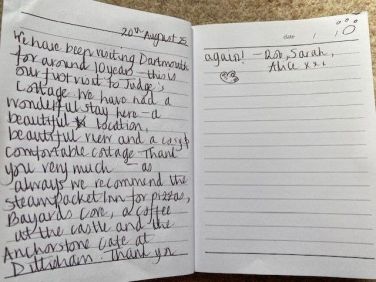 20th August 25
We have been visiting Dartmouth
for around 10 years - this is
our first visit to Judge's
Cottage. We have had a
wonderful stay here - a
beautiful location,
beautiful view and a cosy &
comfortable cottage. Thank
you very much - as
always we recommend the
Steam Packet Inn for pizzas,
Bayards Cove, a coffee
at the castle and the
Anchorstone Cafe at
Dittisham. Thank you
date / /
again! - Rob, Sarah,
xxx